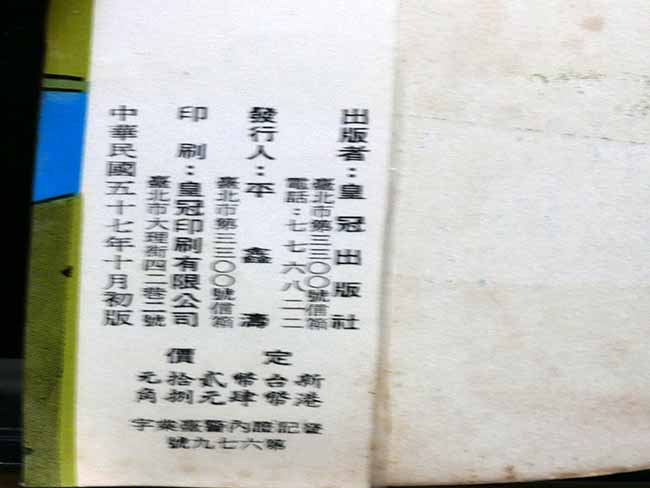 出版者：皇冠出版社
臺北市第三三〇〇號信箱
電話：七七六八二二
發行人：平鑫濤
臺北市第三三〇〇號信箱
印刷：皇冠印刷有限公司
臺北市大理街四二巷二號
中華民國五十七年十月初版
定價
新台幣貳拾元
港幣肆元捌角
登記證內警臺業字
第六七九號